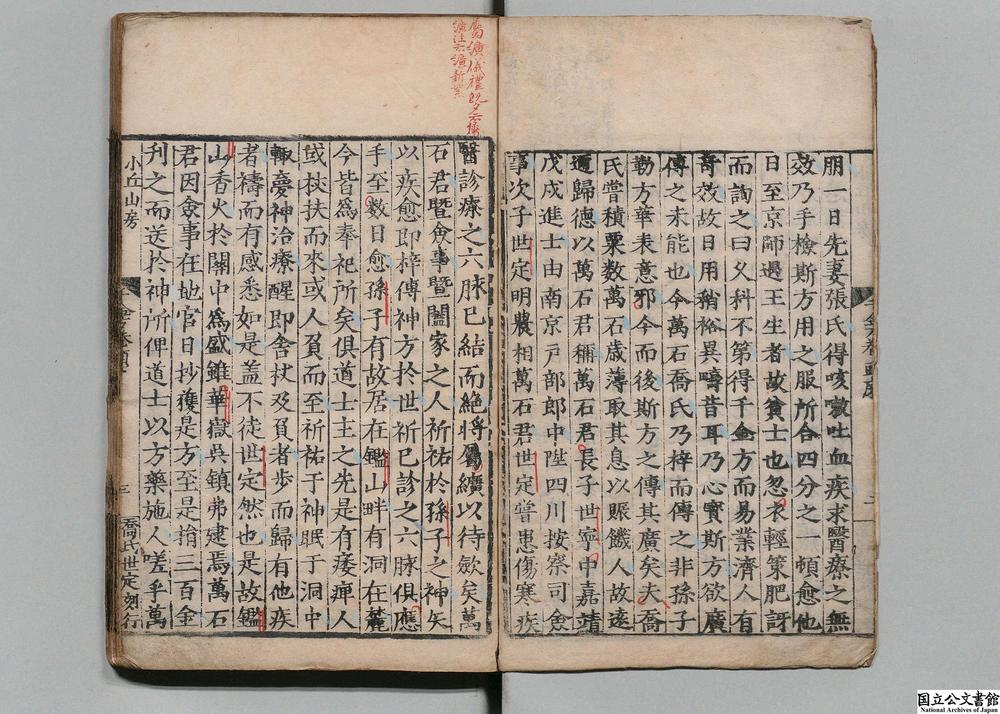 朋一日先妻張氏得咳嗽吐血疾求醫療之無
效乃手檢斯方用之服所合四分之一頓愈他
日至京師過王生者故貧士也忽衣輕策肥訝
而詢之曰父科不第得千金方而易業濟人有
奇效故日用稍裕異疇昔耳乃心寳斯方欲廣
傳之未能也今萬石喬氏乃梓而傳之非孫子
勒方華表意邪今而後斯方之傳其廣矣夫喬
氏嘗積粟数萬石歳薄取其息以賑饑人故逺
邇歸德以萬石君稱萬石君長子世寧中嘉靖
戊戌進士由南京戸部郎中陞四川按察司僉
事次子世定明農相萬石君世定嘗患傷寒疾
醫診療之六脉已結而絶将屬纊以待歛矣萬
石君暨僉事暨闔家之人祈祐於孫子之神矢
以疾愈即梓傳神方於世祈已診之六脉俱應
手至数日愈孫子有故居在鑑山畔有洞在麓
今皆爲奉祀所矣俱道士主之先是有痿痺人
或杖扶而來或人負而至祈祐于神眠于洞中
輙夣神治療醒即舍杖及負者步而歸有他疾
者禱而有感悉如是盖不徒世定然也是故鑑
山香火於關中爲盛雖華嶽吳鎮弗逮焉萬石
君因僉事在地官日抄獲是方至是捐三百金
刋之而送於神所俾道士以方藥施人嗟乎萬
小丘山房
三
喬氏世定刻行
二
屬纊儀禮既夕云
纊注云纊新絮
国立公文書館
National Archives of Japan